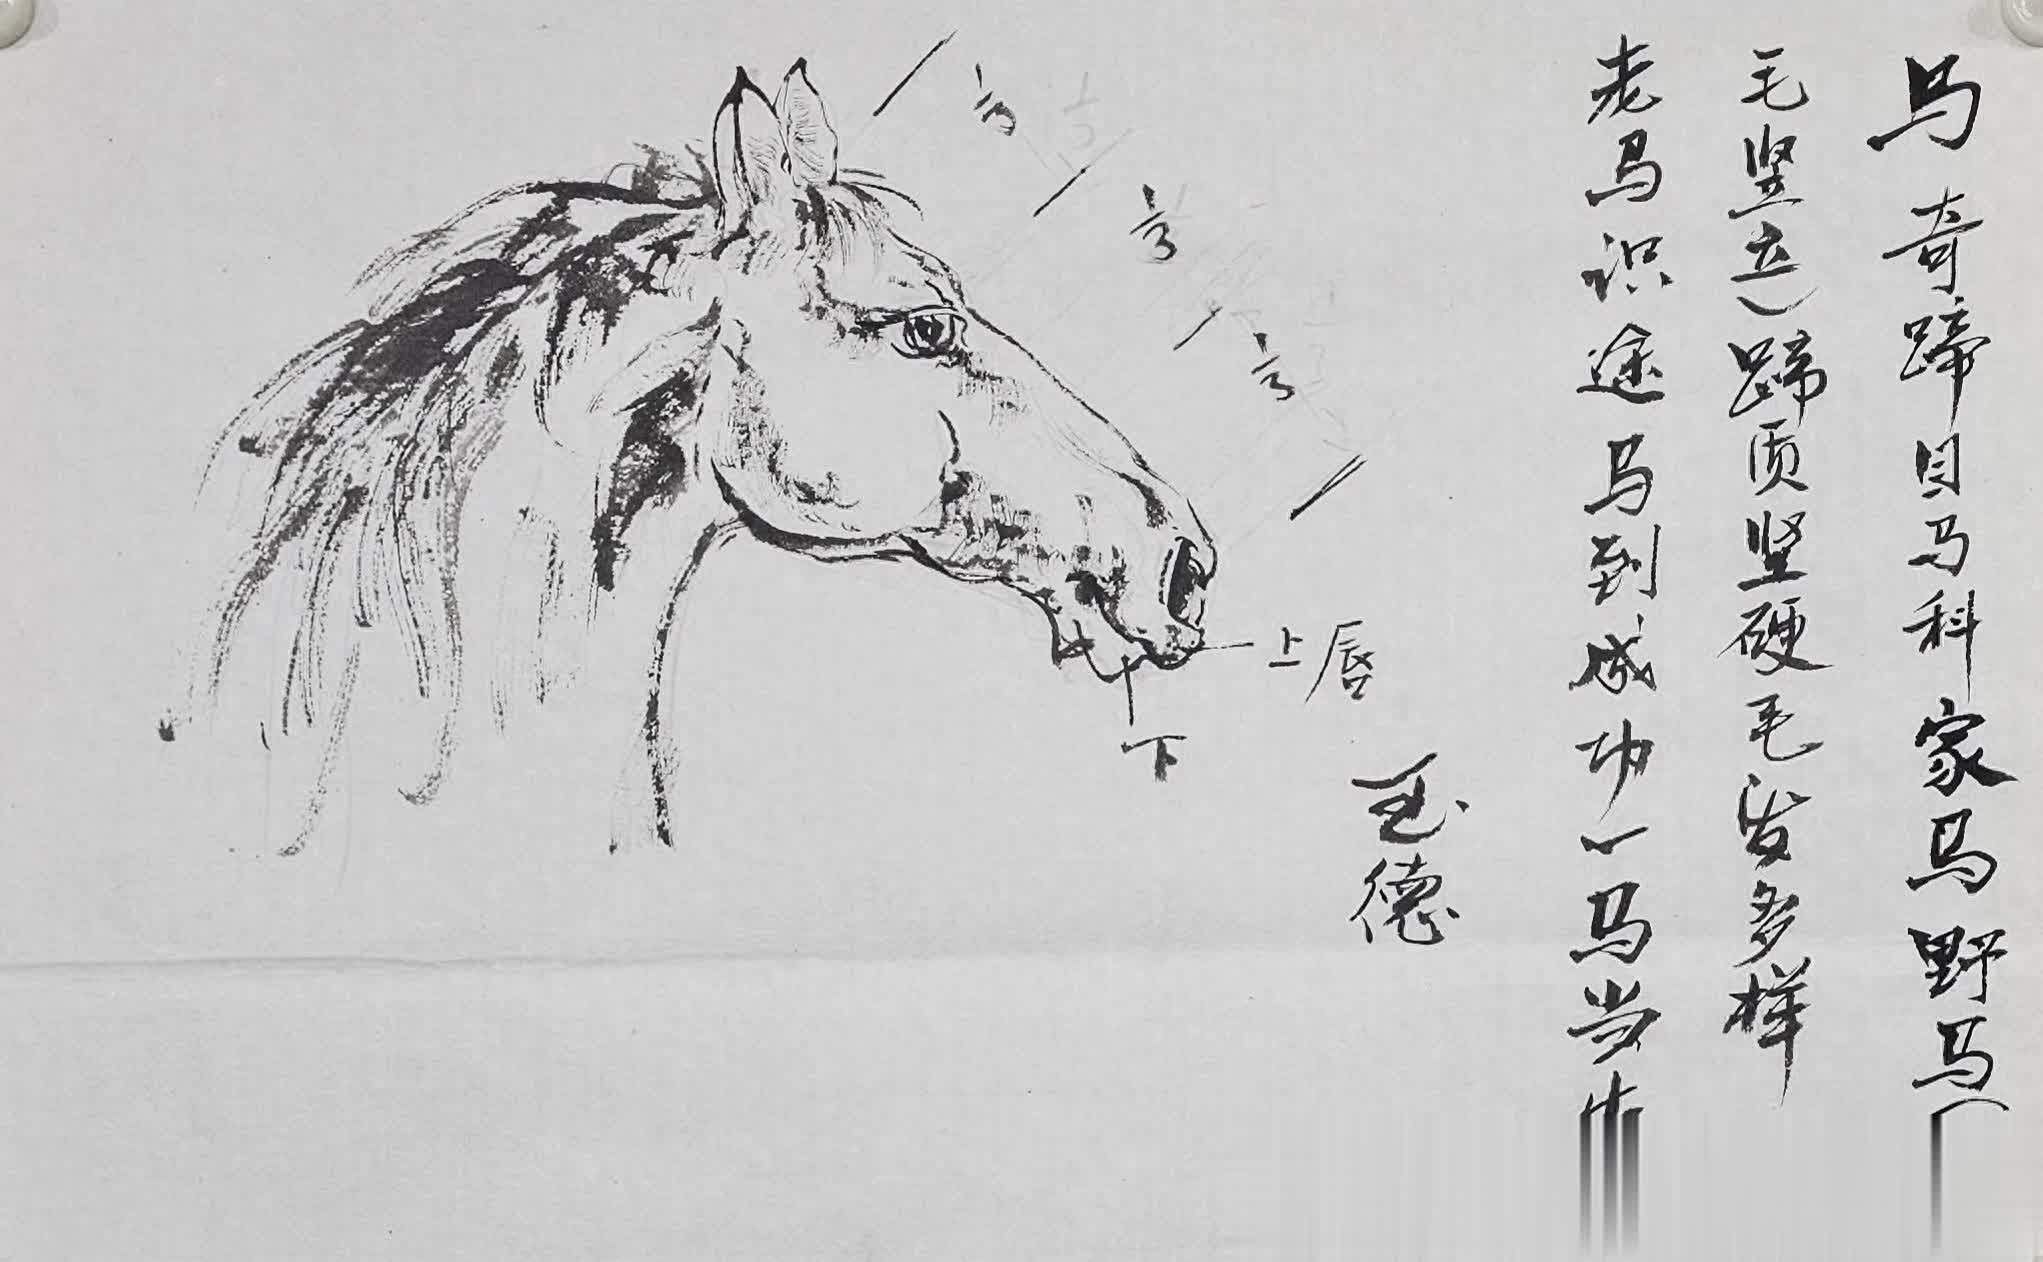 马 奇蹄目马科家马野马(
毛竖立)蹄质坚硬毛发多样
老马识途马到成功一马当
玉德
1/3
1/3
1/3
上唇
下